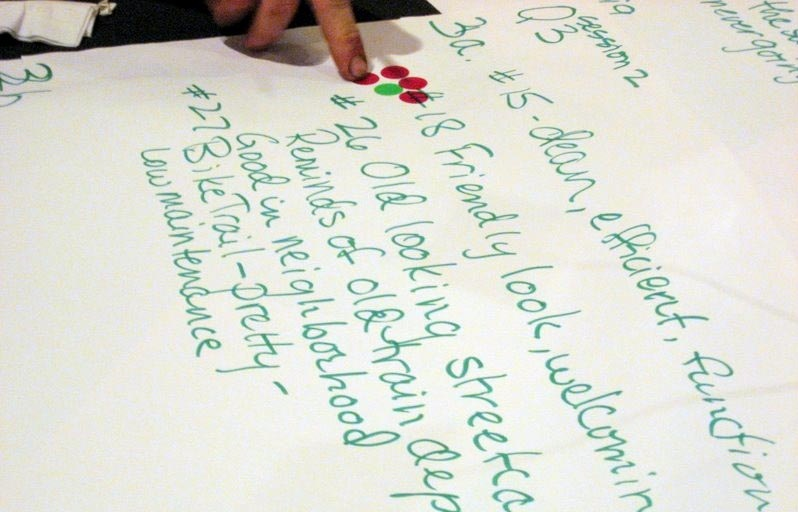 the
never going
session 2
Q3
3a.
#15 - clean, efficient, function
#18 Friendly look, welcomin
#26 Old looking streetca
Reminds of old train dep
Good in neighborhood
#27 Bike Trail - pretty -
Low maintenance
3b